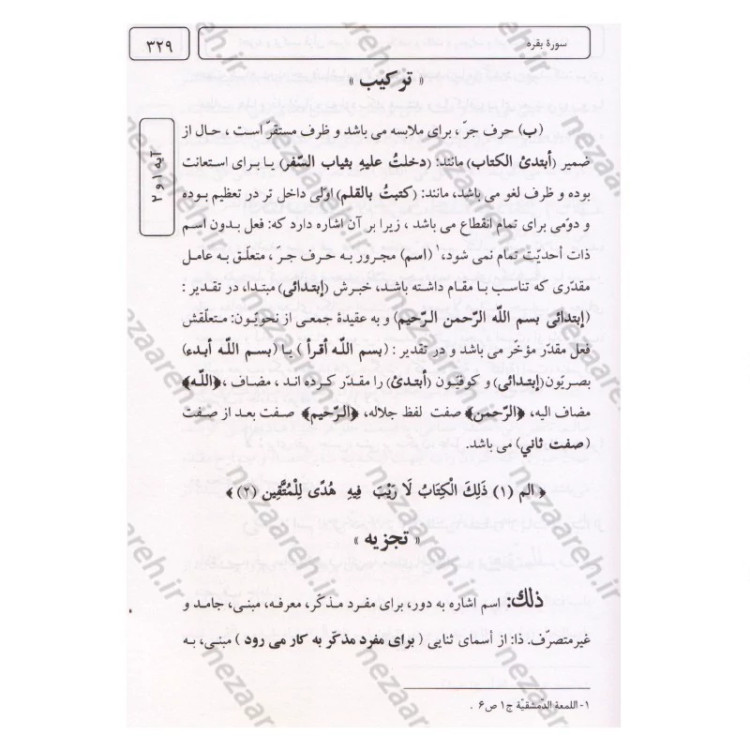 سورهٔ بقره
۳۲۹
« ترکیب »
آیه ۱ و ۲
(ب) حرف جرّ ، برای ملابسه می باشد و ظرف مستقرّ است ، حال از
ضمیر (أبتدئ الکتاب) مانند: (دخلتُ علیهِ بثیاب السَّفر) یا برای استعانت
بوده و ظرف لغو می باشد، مانند: (کتبتُ بالقلم) اوّلی داخل تر در تعظیم بوده
و دوّمی برای تمام انقطاع می باشد ، زیرا بر آن اشاره دارد که: فعل بدون اسم
ذات أحدیّت تمام نمی شود،۱ (اسم) مجرور به حرف جر ، متعلّق به عامل
مقدّری که تناسب با مقام داشته باشد، خبرش (إبتدائی) مبتدا، در تقدیر :
(إبتدائی بسم اللّه الرّحمن الرّحیم) و به عقیدهٔ جمعی از نحویّون: متعلّقش
فعل مقدّر مؤخّر می باشد و در تقدیر : (بسم اللّه أقرأ ) یا (بسم اللّه أبدء)
بصریّون(إبتدائی) و کوفیّون (أبتدئ) را مقدّر کرده اند ، مضاف ، ﴿اللّه﴾
مضاف الیه، ﴿الرّحمن﴾ صفت لفظ جلاله، ﴿الرّحیم﴾ صفت بعد از صفت
(صفت ثانی) می باشد.
﴿ الم (۱) ذَلِكَ الْكِتَابُ لَا رَيْبَ فِيهِ هُدًى لِلْمُتَّقِين (۲) ﴾
« تجزیه »
ذلك: اسم اشاره به دور، برای مفرد مذکّر، معرفه، مبنی، جامد و
غیرمتصرّف. ذا: از أسمای ثنایی ( برای مفرد مذکر به کار می رود ) مبنی، به
۱- اللمعة الدّمشقیّة ج۱ ص۶ .
nezaareh.ir